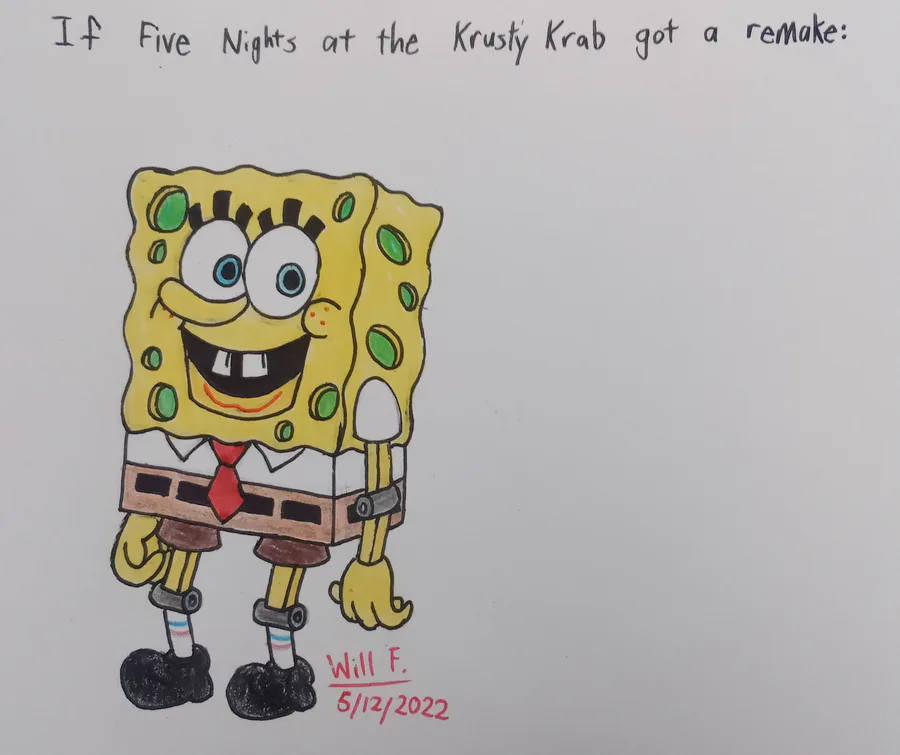 If Five Nights at the Krusty Krab got a remake:
Will F.
5/12/2022